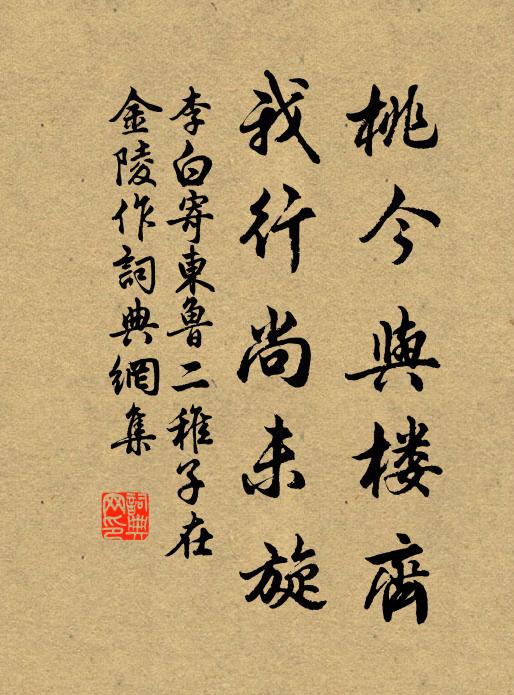 桃今與楼齊
我行尚未旋
李白寄東魯二稚子在
金陵作詞典網集
詞典
网印